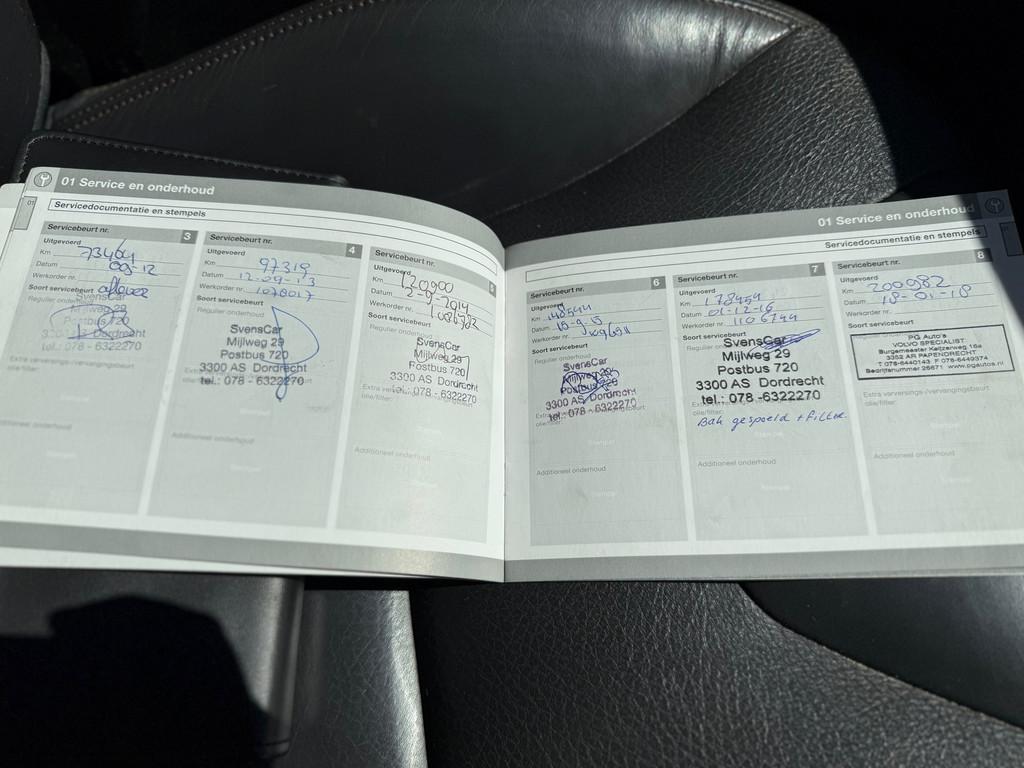 01 Service en onderhoud
01
Servicedocumentatie en stempels
Servicebeurt nr. 3
Uitgevoerd
Km 73464
Datum
Werkorder nr.
Soort servicebeurt aflever
Regulier onderhoud
SvensCar
Mijlweg 29
Postbus 720
3300 AS Dordrecht
tel.: 078 - 6322270
Extra verversings-/vervangingsbeurt
olie/filter:
Stempel
Additioneel onderhoud
Stempel
Servicebeurt nr. 4
Uitgevoerd
Km 97319
Datum 12-09-13
Werkorder nr. 1078017
Soort servicebeurt
Regulier onderhoud
SvensCar
Mijlweg 29
Postbus 720
3300 AS Dordrecht
tel.: 078 - 6322270
Additioneel onderhoud
Servicebeurt nr. 5
Uitgevoerd
Km 120900
Datum 2-9-2014
Werkorder nr.
Soort servicebeurt
Regulier onderhoud
SvensCar
Mijlweg 29
Postbus 720
3300 AS Dordrecht
tel.: 078 - 6322270
Additioneel onderhoud
01 Service en onderhoud
Servicedocumentatie en stempels
Servicebeurt nr. 6
Uitgevoerd
Km 148544
Datum 15-9-15
Werkorder nr.
Soort servicebeurt
Regulier onderhoud
SvensCar
Mijlweg 29
Postbus 720
3300 AS Dordrecht
tel.: 078 - 6322270
olie/filter:
Additioneel onderhoud
Servicebeurt nr. 7
Uitgevoerd
Km 178454
Datum 01-12-16
Werkorder nr. 1106744
Soort servicebeurt
SvensCar
Mijlweg 29
Postbus 720
3300 AS Dordrecht
tel.: 078 - 6322270
Bak gespoeld + filter
Additioneel onderhoud
Servicebeurt nr. 8
Uitgevoerd
Km 200982
Datum 18-01-18
Werkorder nr.
Soort servicebeurt
PG Auto's
VOLVO SPECIALIST
Burgemeester Keijzerweg 16a
3352 AR PAPENDRECHT
T 078-6440143 F 078-6449374
Bedrijfsnummer 26671 www.pgautos.nl
Extra verversings-/vervangingsbeurt
olie/filter:
Additioneel onderhoud